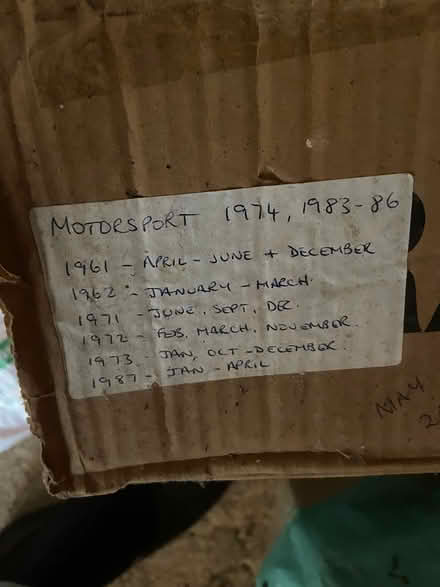 MOTORSPORT 1974, 1983-86
1961 - APRIL - JUNE + DECEMBER
1962 - JANUARY - MARCH.
1971 - JUNE, SEPT, DEC.
1972 - FEB, MARCH, NOVEMBER.
1973 - JAN, OCT - DECEMBER.
1987 - JAN - APRIL
MAY